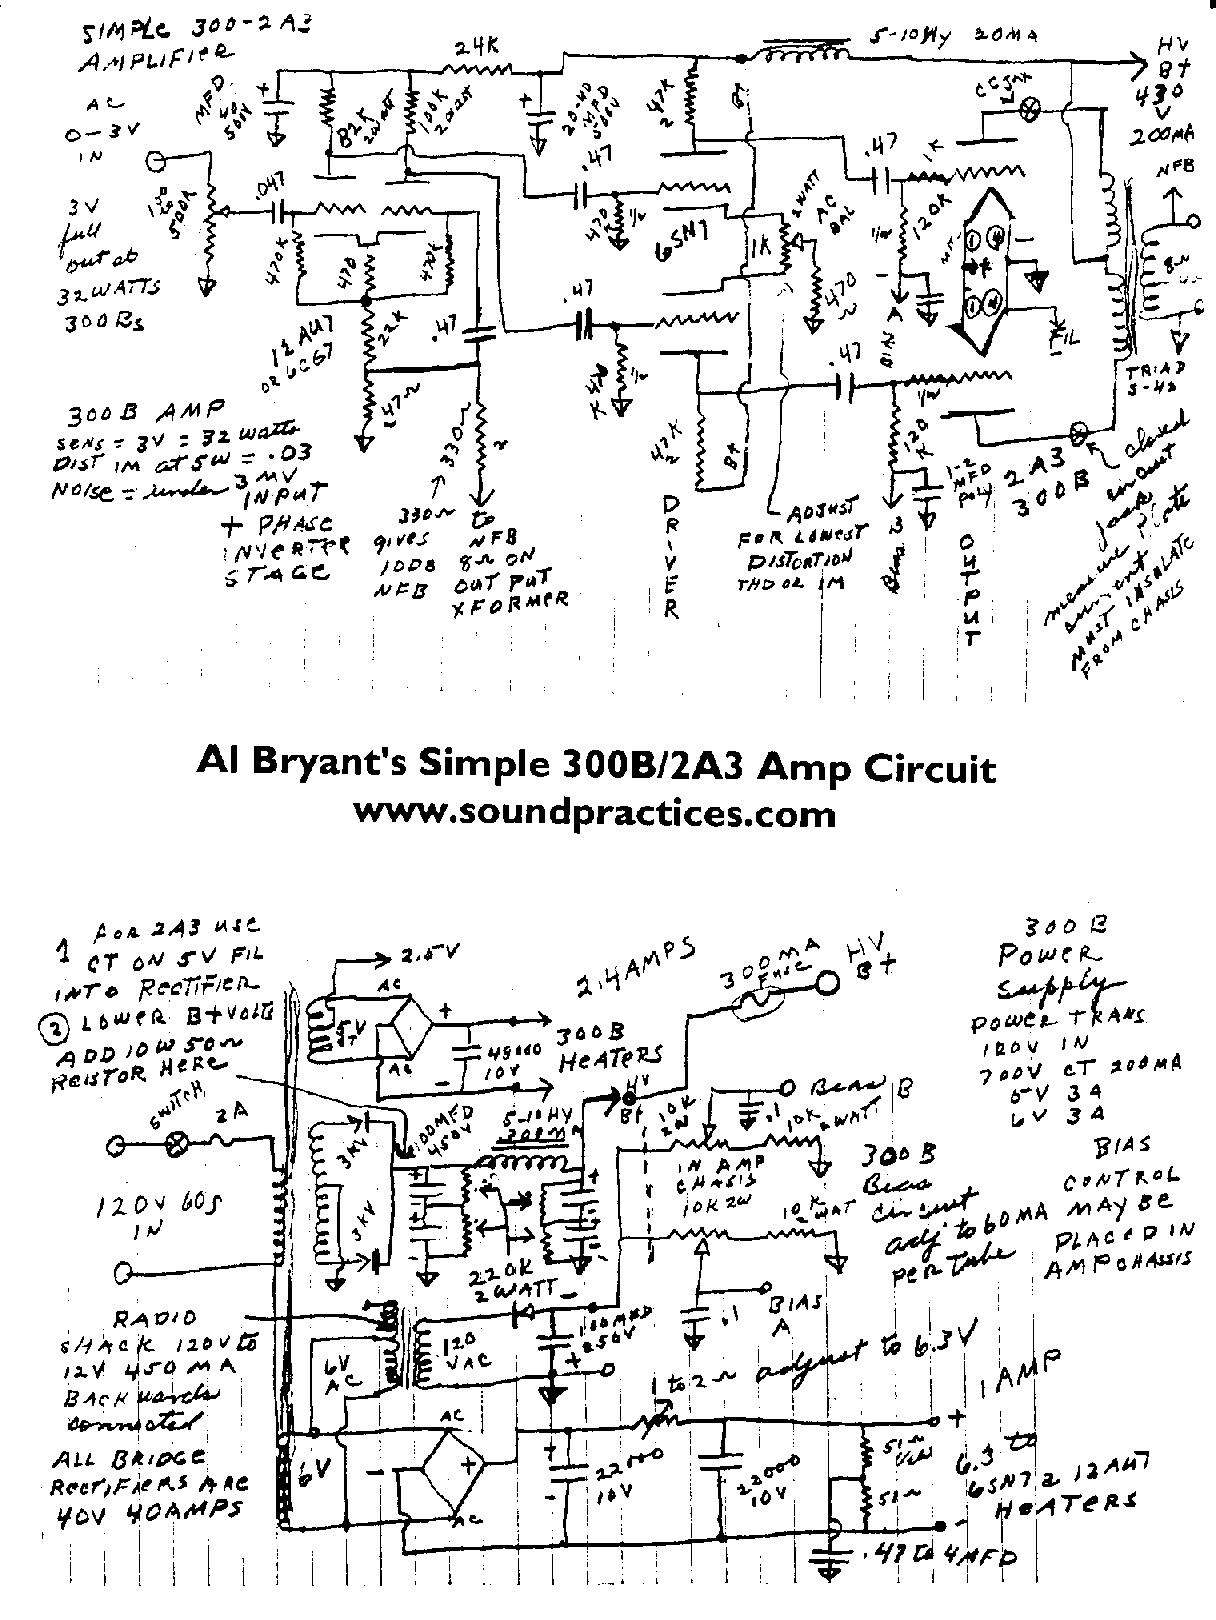 SIMPLE 300-2A3
AMPLIFIER
AC
0-3V
IN
3V
full
out at
32 WATTS
300Bs
500K
MFD
40
500V
82K
2 WATT
100K
2 WATT
24K
20-40
MFD
500V
.047
470K
470
470K
22K
47Ω
.47
12AU7
OR 6CG7
330Ω
.47
470K
1/2
.47
47K
2
6SN7
1K
2 WATT
AC
BAL
470
Ω
B+
5-10Hy 20MA
.47
1K
120K
1/2
BIAS A
.47
1K
120K
Bias B
1-2
MFD
POLY
2A3
300B
FIL
8Ω
HV
B+
430
V
200MA
NFB
TRIAD
S-42
CCJack
closed
circuit
jack
measure plate
current
MUST INSULATE
FROM CHASIS
300B AMP
SENS = 3V = 32 watts
DIST IM at 5W = .03
NOISE = under 3 MV
INPUT
+ PHASE
INVERTER
STAGE
330Ω
gives
10DB
NFB
to
NFB
8Ω ON
OUT PUT
XFORMER
47K
2
B+
DRIVER
ADJUST
FOR LOWEST
DISTORTION
THD OR IM
OUTPUT
Al Bryant's Simple 300B/2A3 Amp Circuit
www.soundpractices.com
1 FOR 2A3 USE
CT ON 5V FIL
INTO RECTIFIER
2 LOWER B+ Volts
ADD 10W 50Ω
REISTOR HERE
SWITCH
2A
120V 60s
IN
RADIO
SHACK 120V to
12V 450MA
BACKwards
connected
ALL BRIDGE
RECTIFIERS ARE
40V 40AMPS
2.5V
AC
5V
CT
AC
+
-
48000
10V
2.4AMPS
300B
HEATERS
300MA
Fuse
HV
B+
HV
B+
3KV
3KV
100MFD
450V
5-10HY
300MA
220K
2WATT
10K
2W
IN AMP
CHASIS
10K 2W
.1
10K
2WATT
Bias B
10K
WAT
.1
BIAS
A
300B
Bias
circuit
adj to 60MA
per tube
6V
AC
120
VAC
100MFD
250V
6V
AC
-
+
AC
22000
10V
1 to 2Ω adjust to 6.3V
22000
10V
51Ω
51Ω
1AMP
+
6.3 to
6SN7 2 12AU7
HEATERS
-
.47 to 4MFD
300B
Power
supply
POWER TRANS
120V IN
700V CT 200MA
5V 3A
6V 3A
BIAS
CONTROL
MAY BE
PLACED IN
AMP CHASSIS